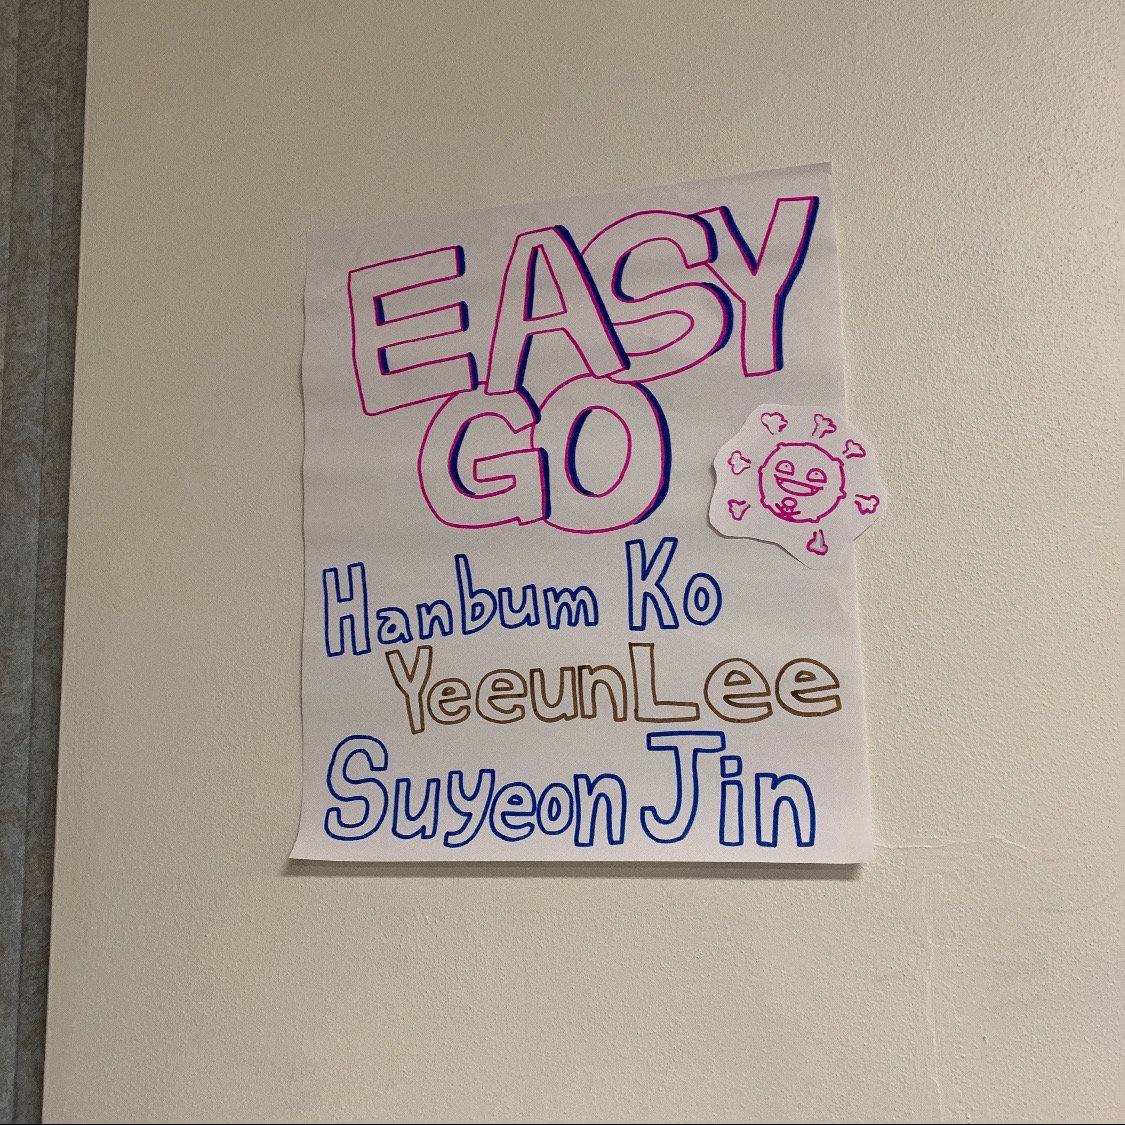 EASY
GO
Hanbum Ko
Yeeun Lee
Suyeon Jin